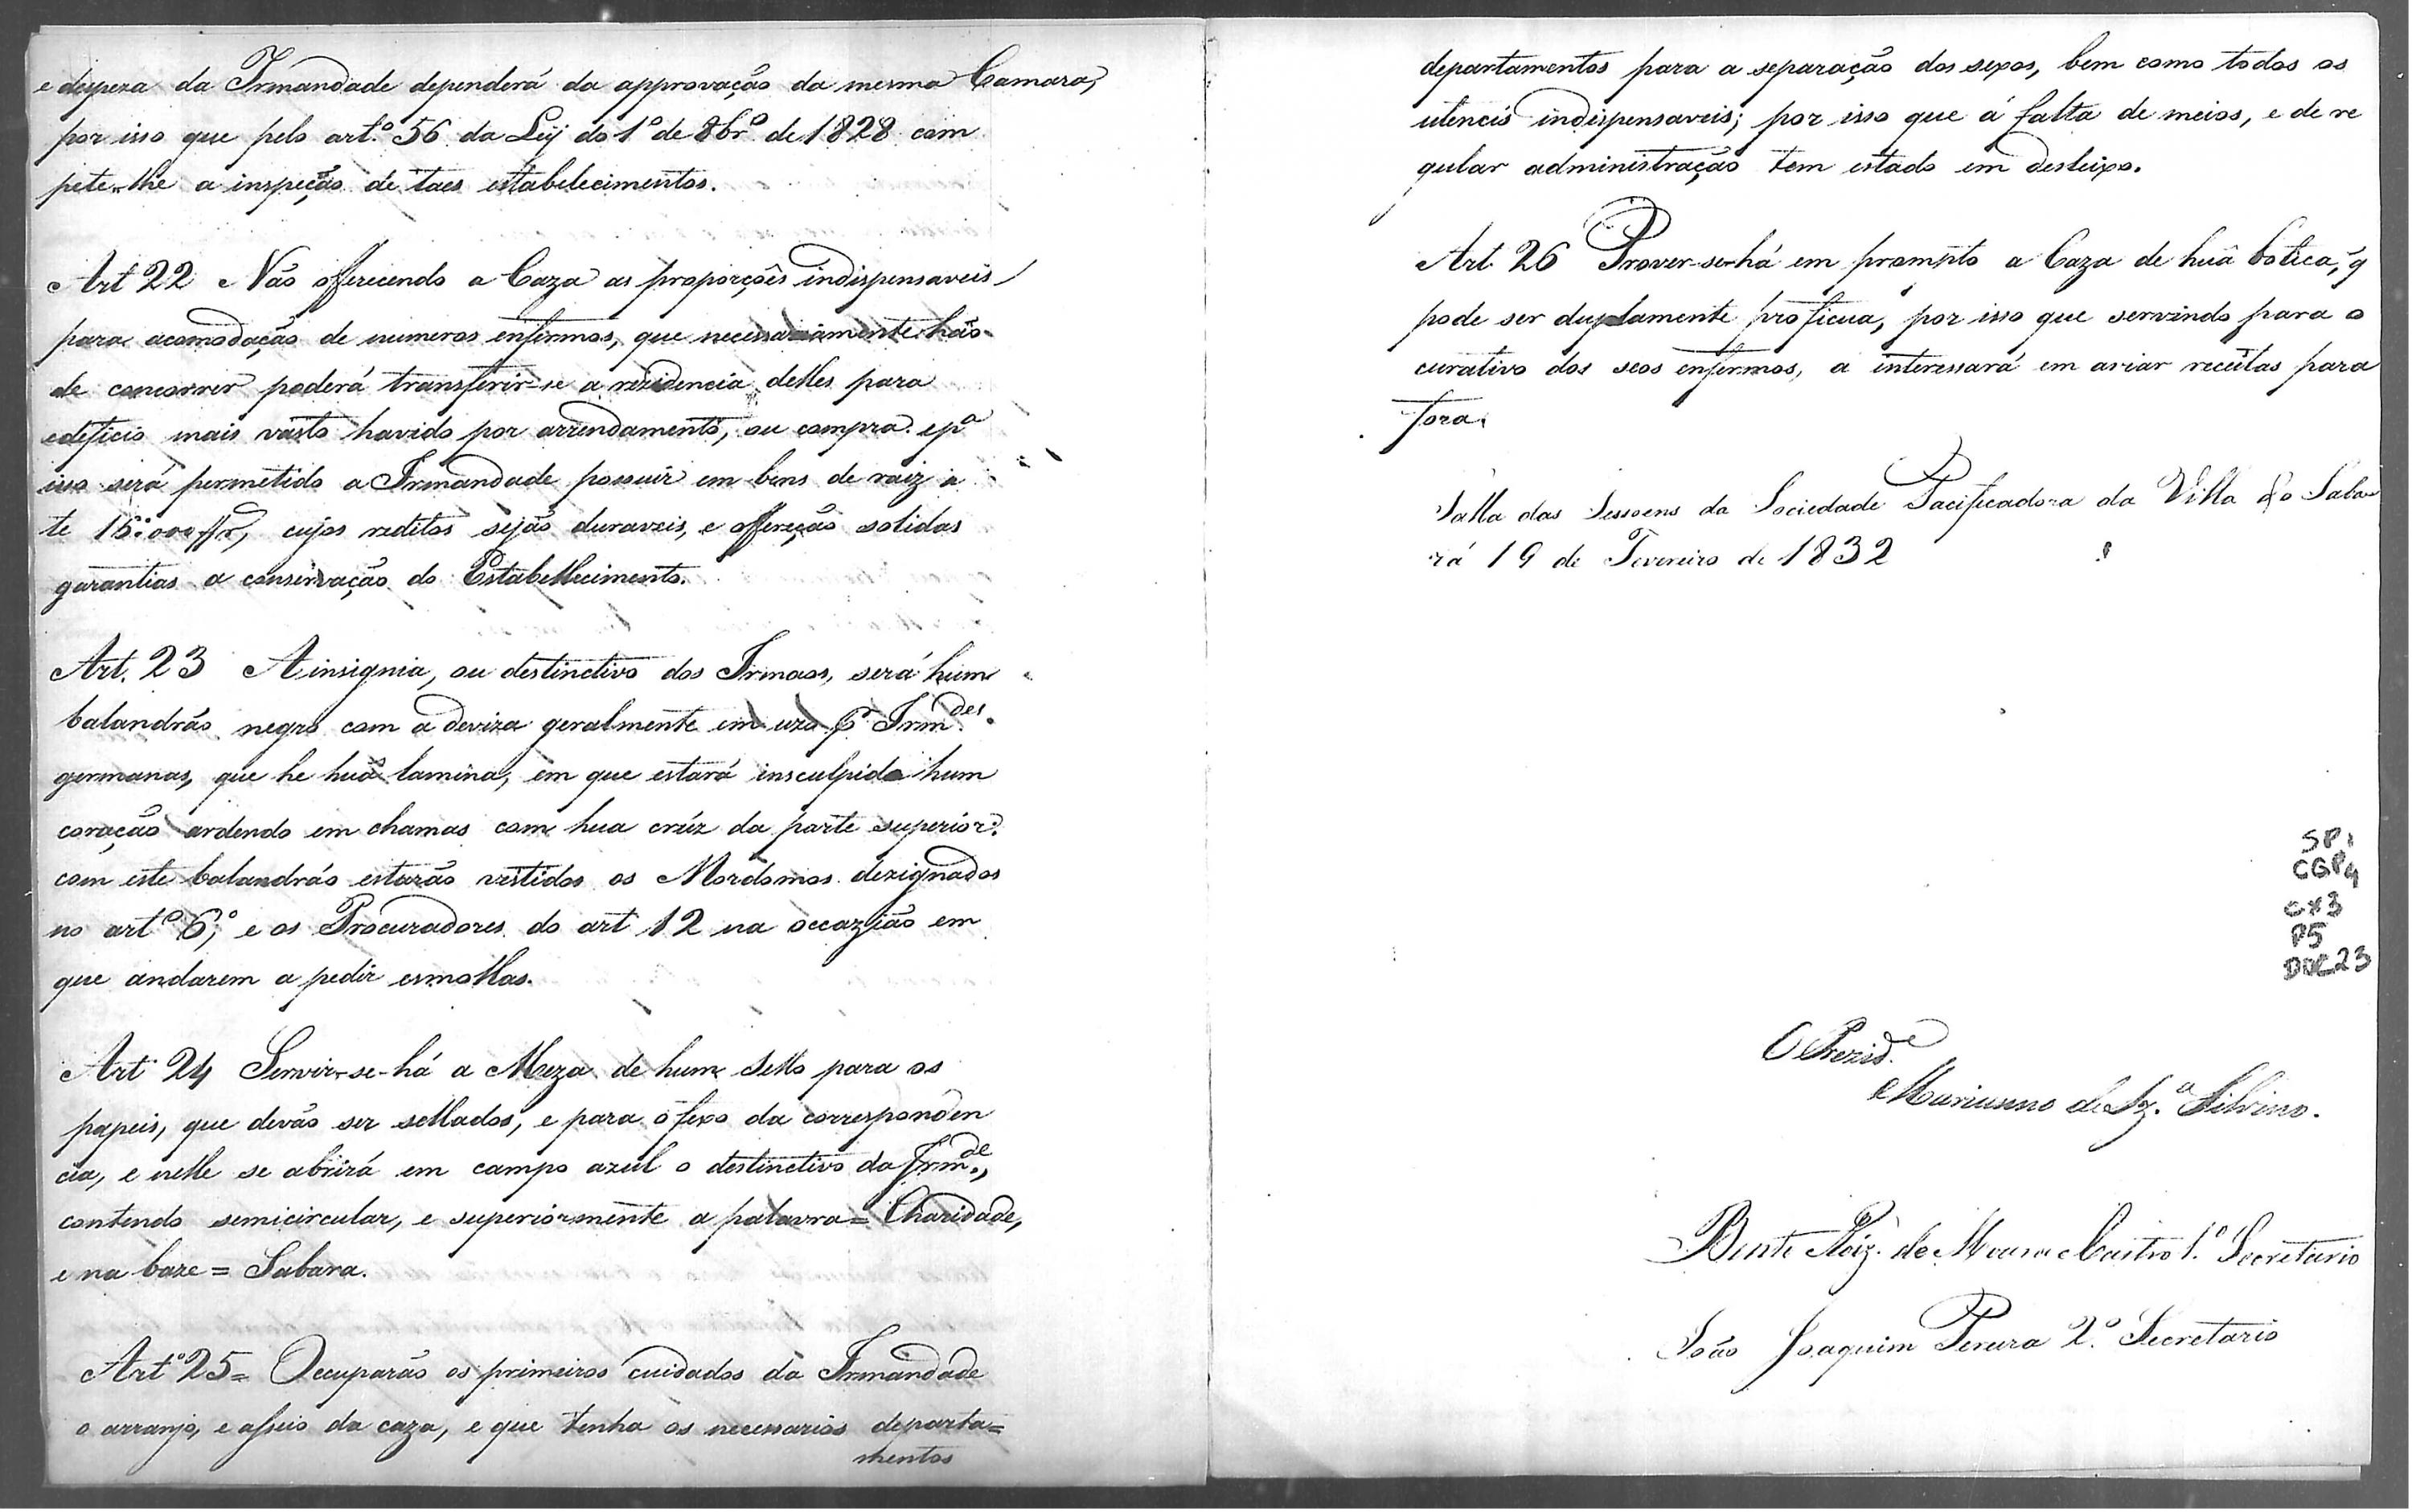 e despeza da Irmandade dependerá da approvação da mesma Camara,
por isso que pelo art.º 56 da Ley do 1º de 8br.º de 1828 com
pete-lhe a inspeção de taes estabelecimentos.
Art 22 Não offerecendo a Caza as proporções indispensaveis
para acomodação de numeros enfermos, que necessariamente hão
de concorrer poderá transferir-se a rezidencia delles para
edificio mais vasto havido por arrendamento, ou compra. e p.ª
isso será permetido a Irmandade possuir em bens de raiz a
te 16:000$r, cujos reditos sejão duraveis, e offereção solidas
garantias a conservação do Estabellecimento.
Art. 23 A insignia, ou destinctivo dos Irmaos, será hum
balandráo negro com a deviza geralmente em uzo pr Irm.des
germanas, que he huã lamina, em que estará insculpido hum
coração ardendo em chamas com hua crúz da parte superior:
com este balandráo estarão vestidos os Mordomos dezignados
no artº 6,º e os Procuradores do art 12 na occazião em
que andarem a pedir esmollas.
Art 24 Servir-se-há a Meza de hum Sello para os
papeis, que devão ser sellados, e para o fexo da corresponden
cia, e nelle se abrirá em campo azul o destinctivo da Irm.de,
contendo semicircular, e superiormente a palavra = Charidade,
e na baze = Sabara.
Artº 25 = Occuparão os primeiros cuidados da Irmandade
o arranjo, e asseio da caza, e que tenha os necessarios departa=
mentos
departamentos para a separação dos sexos, bem como todos os
utencis indispensaveis; por isso que á falta de meios, e de re
gular administração tem estado em desleixo.
Art. 26 Prover-se-há em prompto a Caza de huã botica, q
pode ser duplamente proficua, por isso que servindo para o
curativo dos seos enfermos, a interessará em aviar receitas para
fora.
Salla das Sessoens da Sociedade Pacificadora da Villa do Saba
rá 19 de Fevereiro de 1832
SP:
CGP4
CX3
P5
DOC23
O Prezid.e
Marianno de Sz.ª Silvino.
Bento Roiz. de Moura Castro 1.º Secretario
João Joaquim Pereira 2.º Secretario